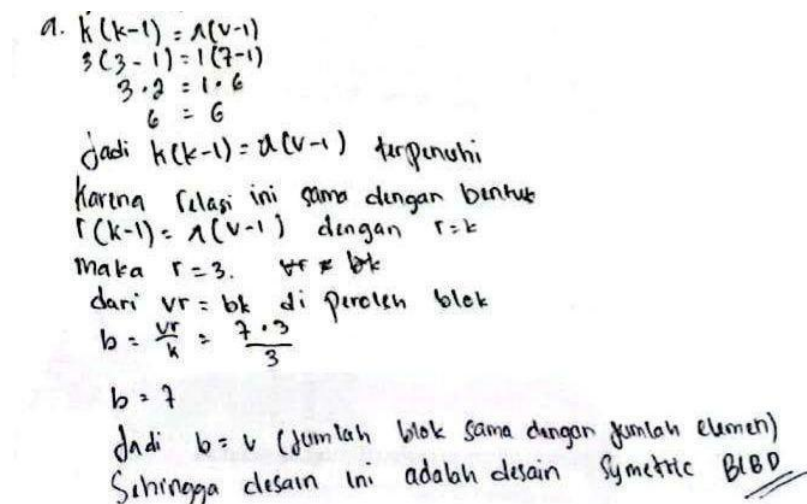 a. k(k-1) = λ(v-1)
3(3-1) = 1(7-1)
3·2 = 1·6
6 = 6
Jadi k(k-1) = λ(v-1) terpenuhi
Karena relasi ini sama dengan bentuk
r(k-1) = λ(v-1) dengan r=k
maka r=3.
dari vr = bk di peroleh blok
b = vr/k = 7·3/3
b = 7
Jadi b = v (Jumlah blok sama dengan jumlah elemen)
Sehingga desain ini adalah desain Symetric BIBD